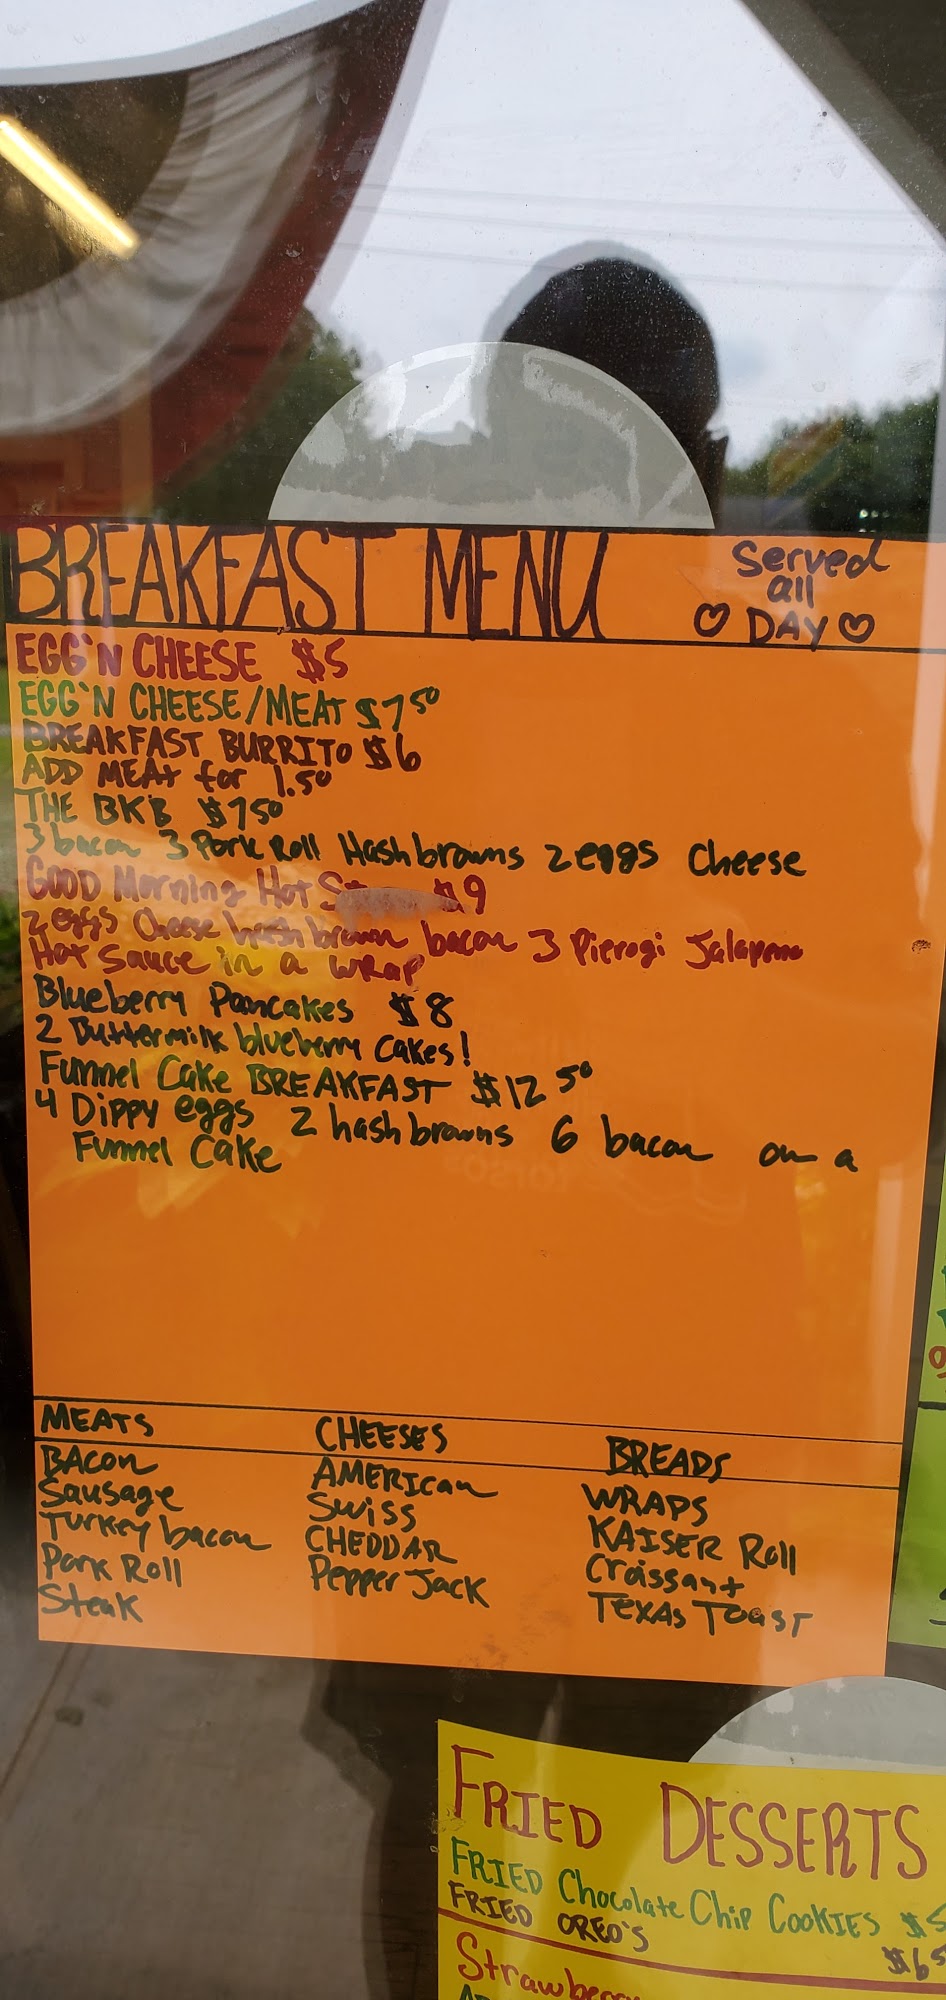 BREAKFAST MENU
Served
all
♡ DAY ♡
EGG'N CHEESE $5
EGG'N CHEESE/MEAT $7 50
BREAKFAST BURRITO $6
ADD MEAt for 1.50
THE BKB $7 50
3 bacon 3 Pork Roll Hashbrowns 2 eggs Cheese
GOOD Morning Hot $9
2 eggs Cheese hash brown bacon 3 Pierogi Jalapeno
Hot Sauce in a wrap
Blueberry Pancakes $8
2 Buttermilk blueberry Cakes!
Funnel Cake BREAKFAST $12 50
4 Dippy eggs 2 hashbrowns 6 bacon on a
Funnel Cake
MEATS CHEESES BREADS
BACON AMERICAN WRAPS
Sausage Swiss KAISER Roll
Turkey bacon CHEDDAR Croissant
Pork Roll Pepper Jack TEXAS TOAST
Steak
FRIED DESSERTS
FRIED Chocolate Chip COOKIES $5
FRIED OREO'S $6